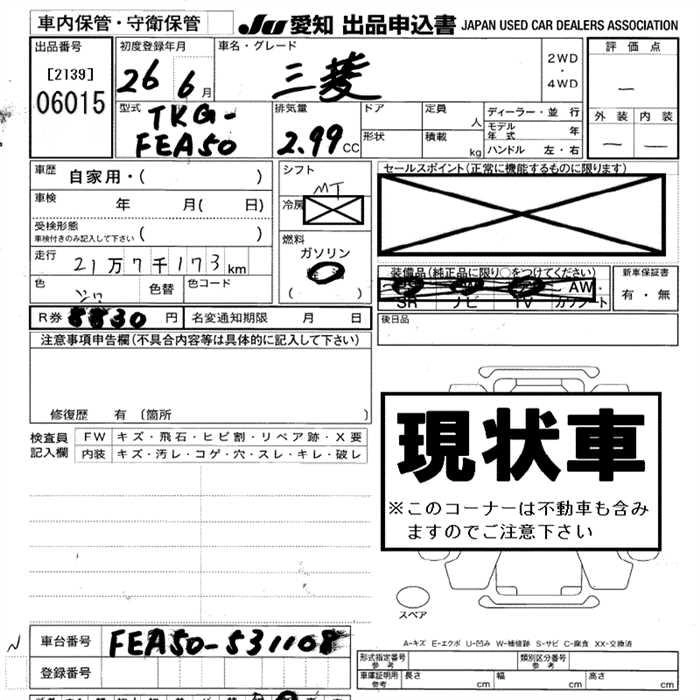 車内保管・守衛保管
JU 愛知 出品申込書 JAPAN USED CAR DEALERS ASSOCIATION
出品番号
[2139]
06015
初度登録年月
26 6月
車名・グレード
三菱
2WD
・
4WD
評価点
—
外装 内装
— —
型式
TKG-
FEA50
排気量
2.99 CC
ドア
形状
定員 人
積載 kg
ディーラー・並行
モデル年式 年
ハンドル 左・右
車歴 自家用・( )
車検 年 月( 日)
受検形態
車検付きのみ記入して下さい ( )
走行
21万7千173km
色 色替 色コード
シフト
MT
冷房
燃料
ガソリン
( )
セールスポイント(正常に機能するものに限ります)
装備品(純正品に限り○をつけてください)
AW
SR ナビ TV カワシート
新車保証書
有・無
R券 8830円 名変通知期限 月 日
後日品
注意事項申告欄(不具合内容等は具体的に記入して下さい)
修復歴 有(箇所 )
検査員 FW キズ・飛石・ヒビ割・リペア跡・X要
記入欄 内装 キズ・汚レ・コゲ・穴・スレ・キレ・破レ
現状車
※このコーナーは不動車も含み
ますのでご注意下さい
スペア
A-キズ E-エクボ U-凹み W-補修跡 S-サビ C-腐食 XX-交換済
車台番号 FEA50-531108
登録番号
形式指定番号 参考
類別区分番号 参考
車庫証明用 参考 長さ cm 幅 cm 高さ cm